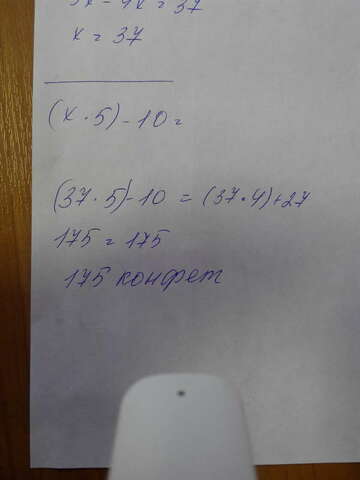 5x - 4x = 37
x = 37
(x · 5) - 10 =
(37 · 5) - 10 = (37 · 4) + 27
175 = 175
175 конфет